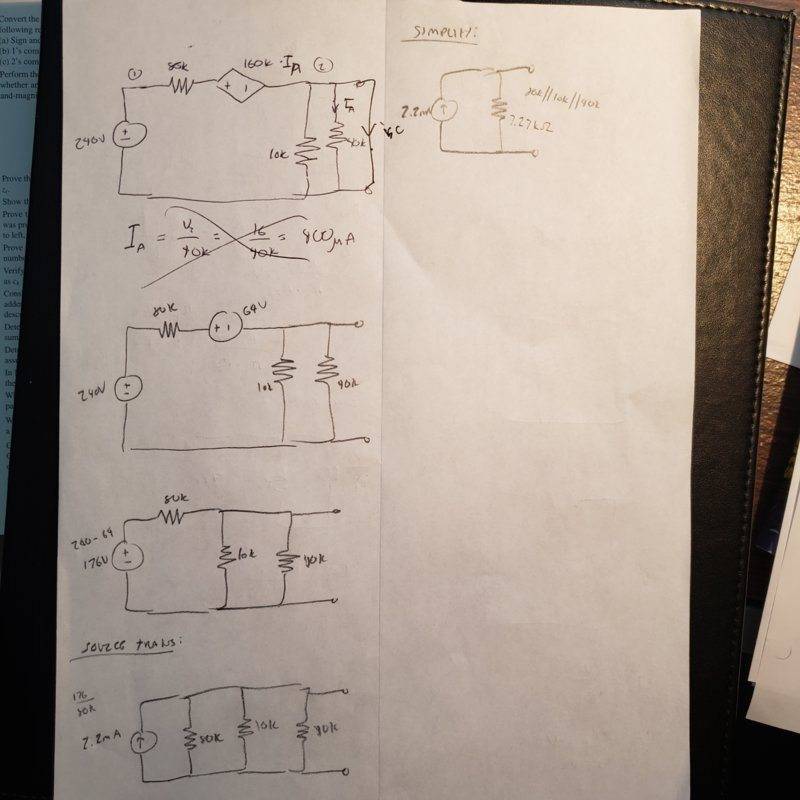 Convert the
following n
(a) Sign and
(b) 1's com
(c) 2's com
Perform the
whether ar
and-magni
Prove th
Show th
Prove t
was pr
to left.
Prove
numbe
Verify
as
Cons
adde
descr
Dete
sum
Dete
asso
In
the
① 80k 160k·I_A ②
+ -
240V
+ -
10k
I_A
iSC
I_A = = 16/40k = 400μA
80k 64V
+ -
240V
+ -
10k 40k
80k
240-64
176V
+ -
10k 40k
SOURCE TRANS:
176/80k
2.2mA
80k 10k 40k
SIMPLIFY:
2.2mA
80k//10k//40k
7.27kΩ